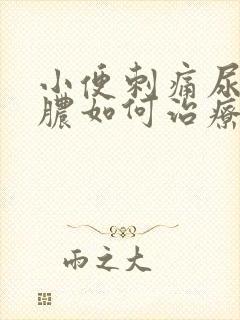 小便刺痛尿
膿如何治療
雨之大